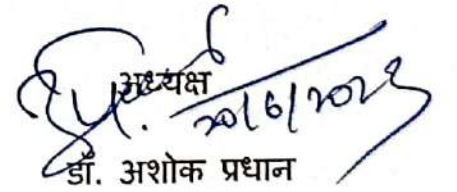 अध्यक्ष
20/6/2023
डॉ. अशोक प्रधान